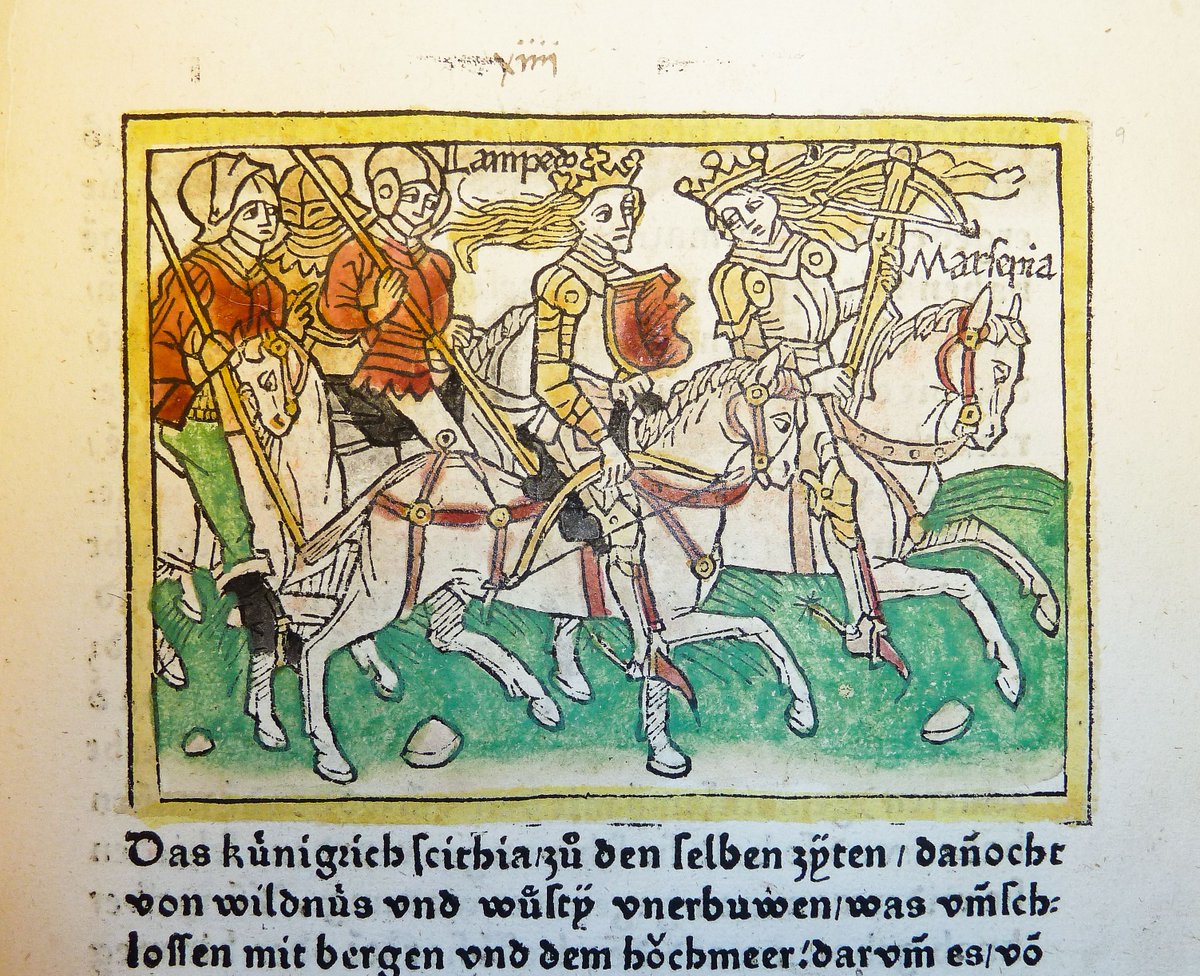 xiiij
Lampedo
Marsepia
Das kůnigrich ſcithia/zů den ſelben zÿten / dan̄ocht
von wildnůs vnd wůſtÿ vnerbuwen/was vm̄ſch:
loſſen mit bergen vnd dem hŏchmeer/darvm̄ es/vō